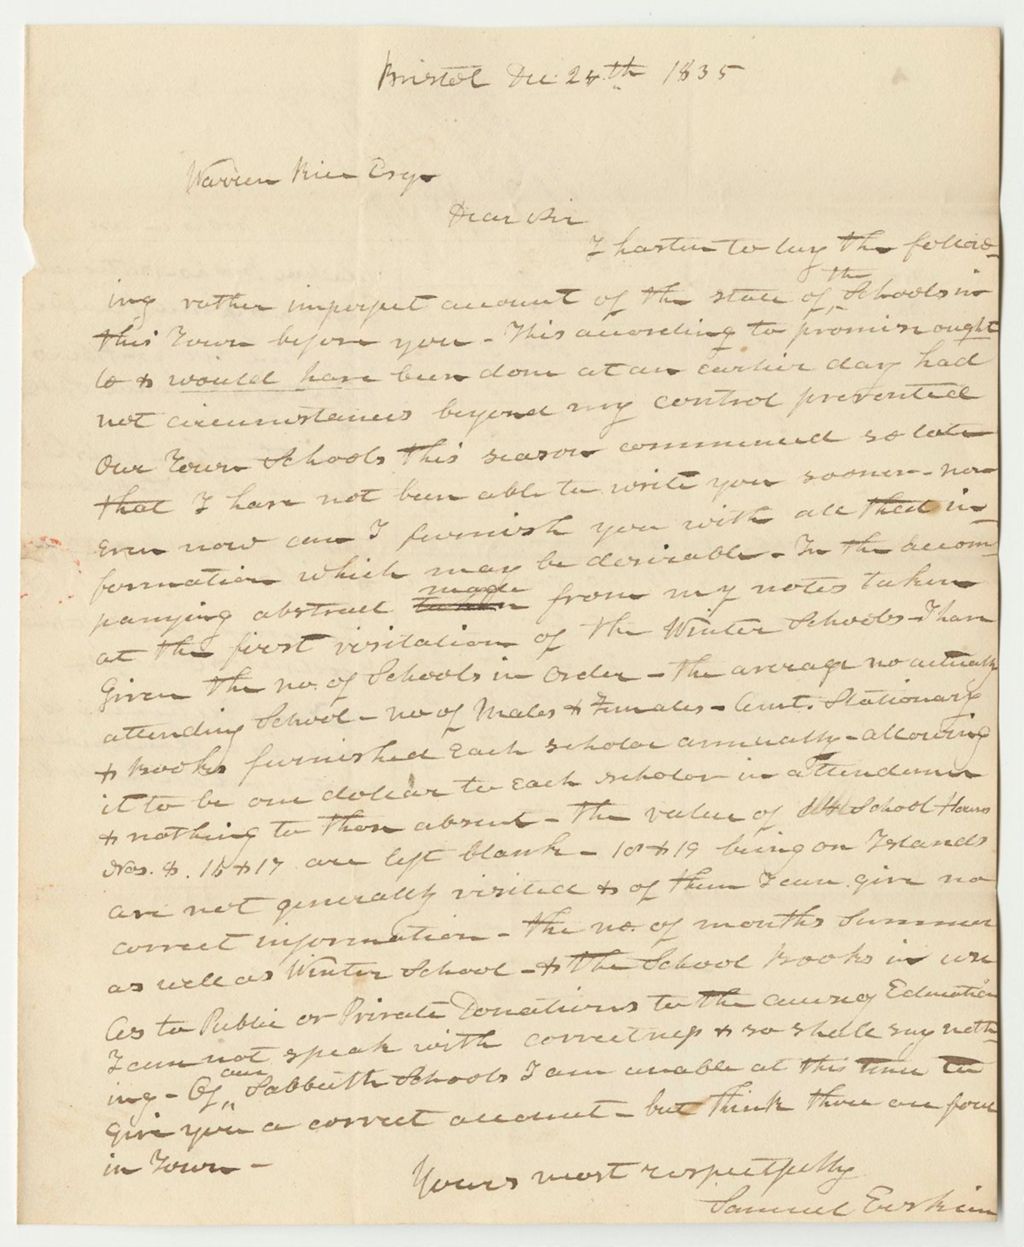 Bristol Dec 24th 1835
Warren Rice Esqr
Dear Sir
I hasten to lay the follow-
ing rather imperfect account of the state of the Schools in
this Town before you - This according to promise ought
to & would have been done at an earlier day had
not circumstances beyond my control prevented
Our Town Schools this season commenced so late
that I have not been able to write you sooner - nor
even now can I furnish you with all that in-
formation which may be desirable - In the accom-
panying abstract made from my notes taken
at the first visitation of the Winter Schools - I have
Given the no. of Schools in order - the average no actually
attending School - no of Males & Females - Amt. Stationary
& Books furnished Each scholar annually - allowing
it to be one dollar to Each scholar in attendance
& nothing to those absent - the value of School Hous
Nos. 8. 15 & 17 are left blank - 18 & 19 being on Islands
are not generally visited & of them I can give no
correct information - the no. of months Summer
as well as Winter School - & the School Books in use
As to Public or Private Donations to the cause of Education
I can not speak with correctness & so shall say noth-
ing - Of our Sabbath Schools I am unable at this time to
give you a correct account - but think there are four
in Town -
Yours most respectfully
Samuel Erskine